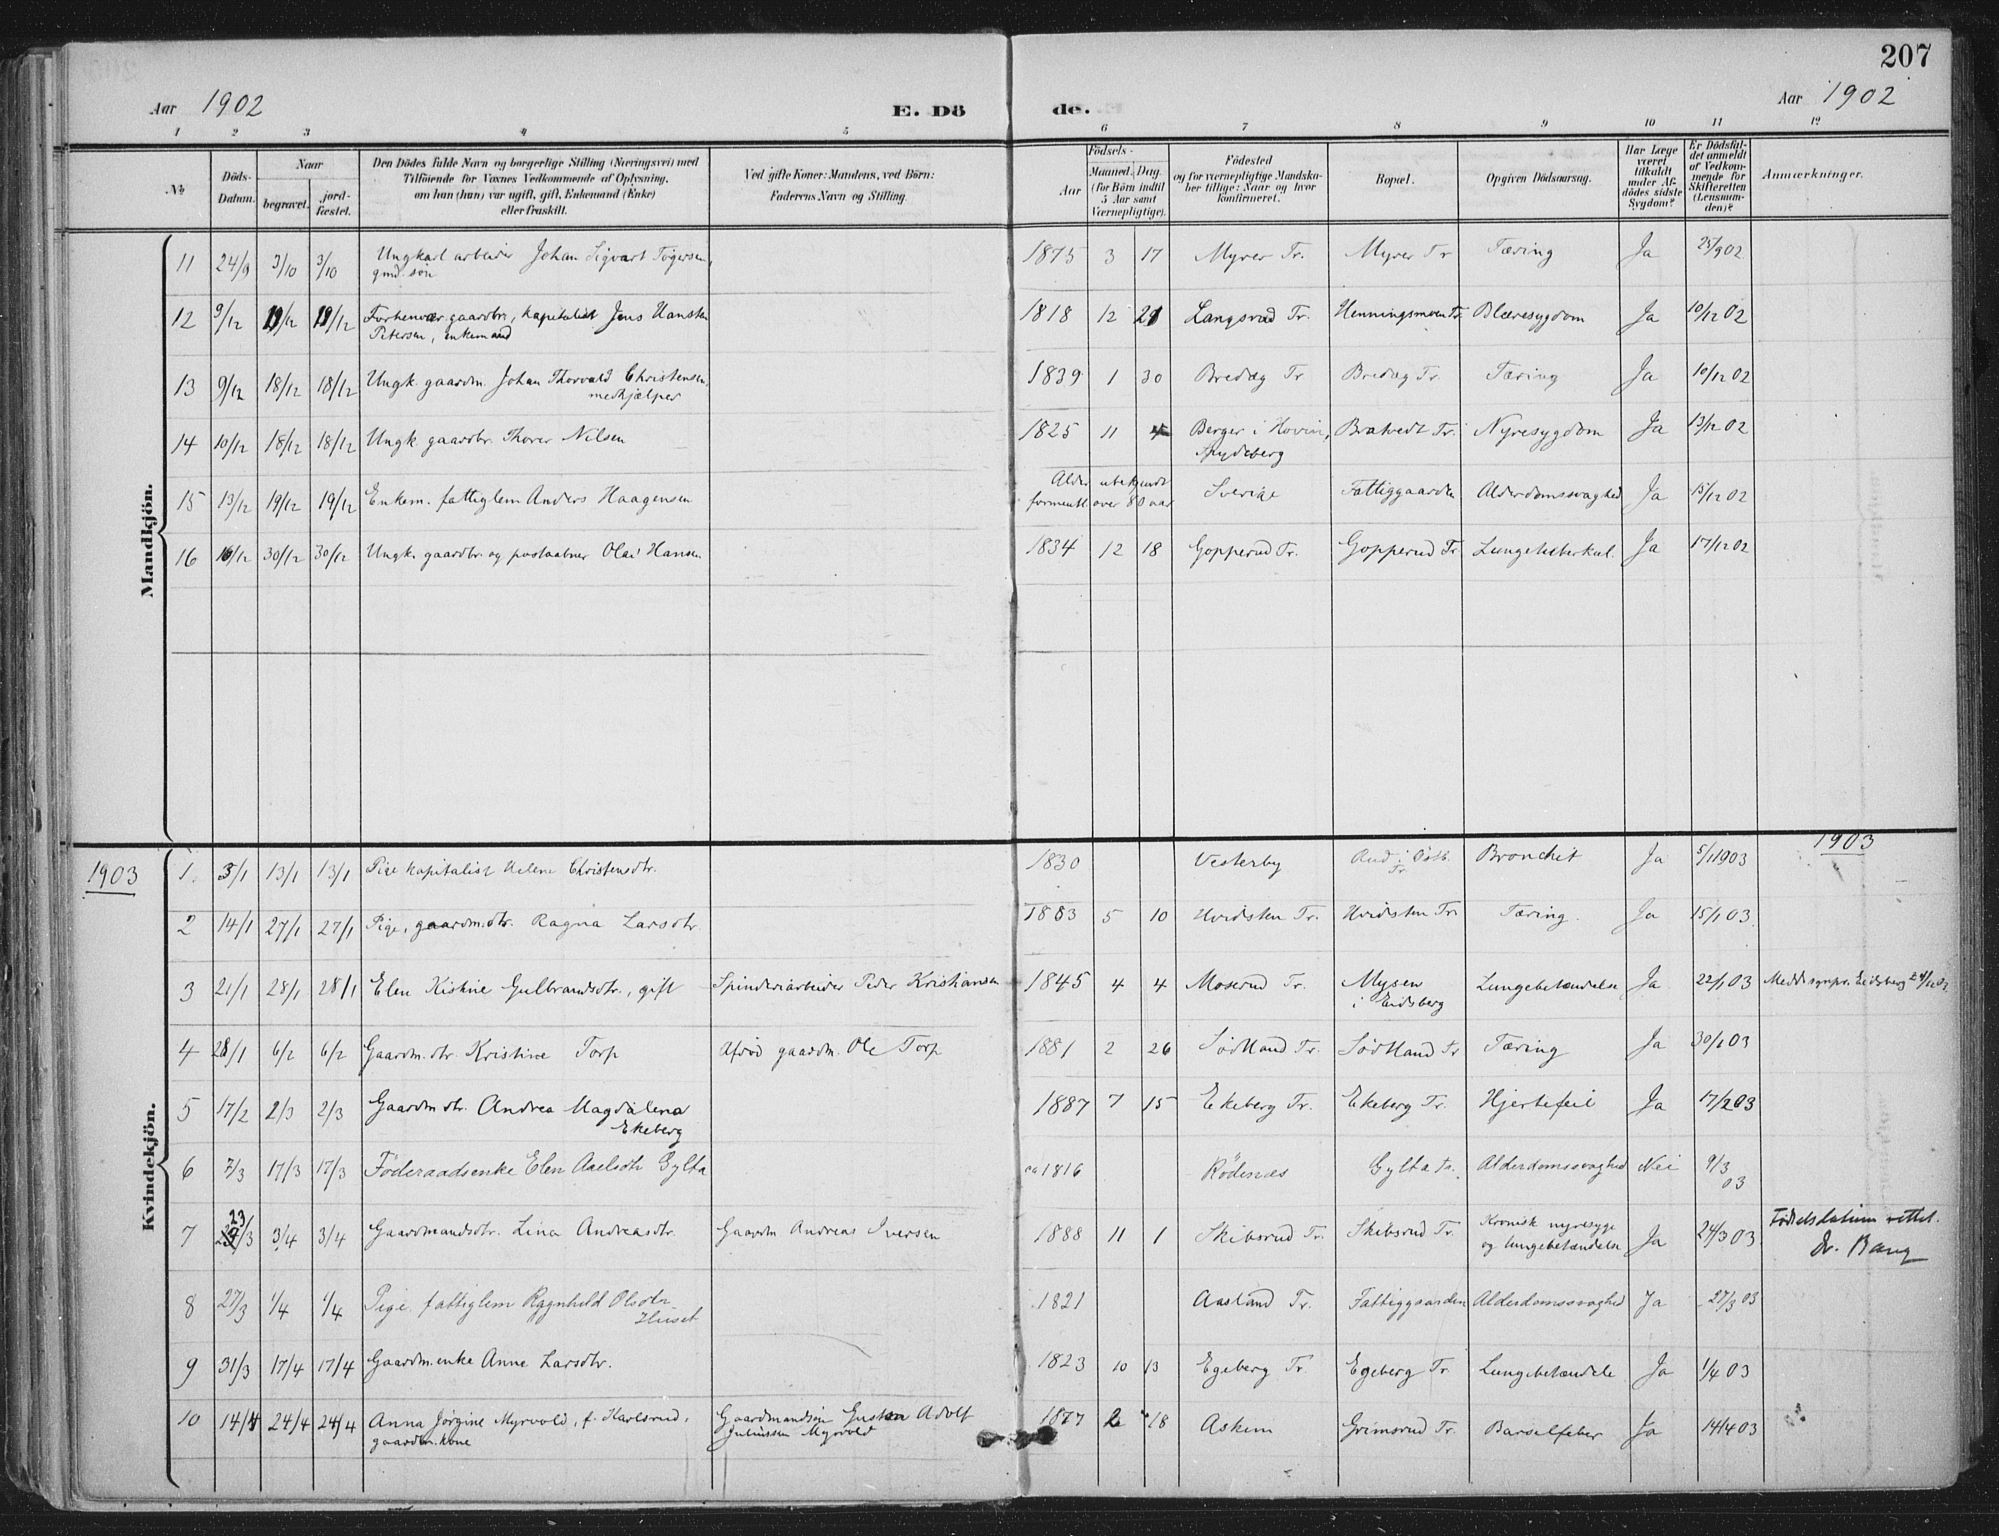 207
Aar 1902 E. Dö de. Aar 1902
1 2 3 4 5 6 7 8 9 10 11 12
№ Döds-Datum. Naar begravet. jord-fæstet. Den Dödes fulde Navn og borgerlige Stilling (Næringsvei) med Tilföiende for Voxnes Vedkommende af Oplysning, om han (hun) var ugift, gift, Enkemand (Enke) eller fraskilt. Ved gifte Koner: Mandens, ved Börn: Faderens Navn og Stilling. Födsels- Aar Maaned. Dag. (for Börn indtil 5 Aar samt Værnepligtige). Födested og for værnepligtige Mandska-ber tillige: Naar og hvor konfirmeret. Bopæl. Opgiven Dödsaarsag. Har Læge været tilkaldt under Af-dödes sidste Sygdom? Er Dödsfal-det anmeldt af Vedkom-mende for Skifteretten (Lensman-den)? Anmærkninger.
Mandkjön.
11 24/9 3/10 3/10 Ungkarl arbeider Johan Sigvart Togersen, gmd. sön 1875 3 17 Myrer Tr. Myrer Tr Tæring Ja 25/9 02
12 9/12 19/12 19/12 Forhenvær. gaardbr., kapitalist Jens Hansten Petersen, enkemand 1818 12 21 Langsrud Tr. Henningsmoen Tr. Blæresygdom Ja 10/12 02
13 9/12 18/12 18/12 Ungk. gaardm. Johan Thorvald Christensen, medhjælper 1839 1 30 Bredag Tr Bredag Tr. Tæring Ja 10/12 02
14 10/12 18/12 18/12 Ungk gaardbr. Thorer Nilsen 1825 11 4 Berger i Hovin, Spydeberg Bratvedt Tr. Nyresygdom Ja 13/12 02
15 13/12 19/12 19/12 Enkem. fattiglem Anders Haagensen Alder ubekjendt formentl. over 80 aar Sverige Fattiggaarden Alderdomssvaghed Ja 15/12 02
16 16/12 30/12 30/12 Ungk. gaardbr. og postaabner Olai Hansen 1834 12 18 Gopperud Tr. Gopperud Tr. Lungetuberkul. Ja 17/12 02
1903 1903
Kvindekjön.
1. 5/1 13/1 13/1 Pige kapitalist Helene Christensdtr. 1830 Vesterby Aud i Östb. Tr Bronchit Ja 5/1 1903
2 14/1 27/1 27/1 Pige, gaardm.dtr. Ragna Larsdtr. 1883 5 10 Hvidsten Tr. Hvidsten Tr. Tæring. Ja 15/1 03
3 21/1 28/1 28/1 Elen Kistine Gulbrandsdtr., gift Spinderiarbeider Peder Kristiansen 1845 4 4 Moserud Tr. Mysen i Eidsberg Lungebetændelse Ja 22/1 03 Medd. sgnpr. Eidsberg
4 28/1 6/2 6/2 Gaardm. dtr. Kristine Torp Afdød gaardm. Ole Torp 1881 2 26 Sødtland Tr. Sødtland Tr Tæring Ja 30/1 03
5 17/2 2/3 2/3 Gaardm dtr. Andrea Magdalena Ekeberg 1887 7 15 Ekeberg Tr. Ekeberg Tr. Hjertefeil Ja 17/2 03
6 7/3 17/3 17/3 Föderaadsenke Elen Axelsdtr Gylta ca 1816 Rödenæs Gylta Tr. Alderdomssvaghed Nei 9/3 03
7 23/3 3/4 3/4 Gaardmandsdtr. Lina Andreasdtr. Gaardm Andreas Iversen 1888 11 1 Skibsrud Tr. Skibsrud Tr. Kronisk nyresyge og lungebetændelse Ja 24/3 03 Fødselsdatum rettet. Dr. Bang
8 27/3 1/4 1/4 Pige. fattiglem Ragnhild Olsdtr Huset 1821 Aasland Tr. Fattiggaarden Alderdomssvaghed Ja 27/3 03
9 31/3 17/4 17/4 Gaardm.enke Anne Larsdtr. 1823 10 13 Egeberg Tr. Egeberg Tr. Lungebetændelse Ja 1/4 03
10 14/4 24/4 24/4 Anna Jørgine Myrvold, f. Karlsrud, gaardm.kone Gustav Adolf Juliussen Myrvold 1877 2 18 Askem Grimsrud Tr. Barselfeber Ja 14/4 03